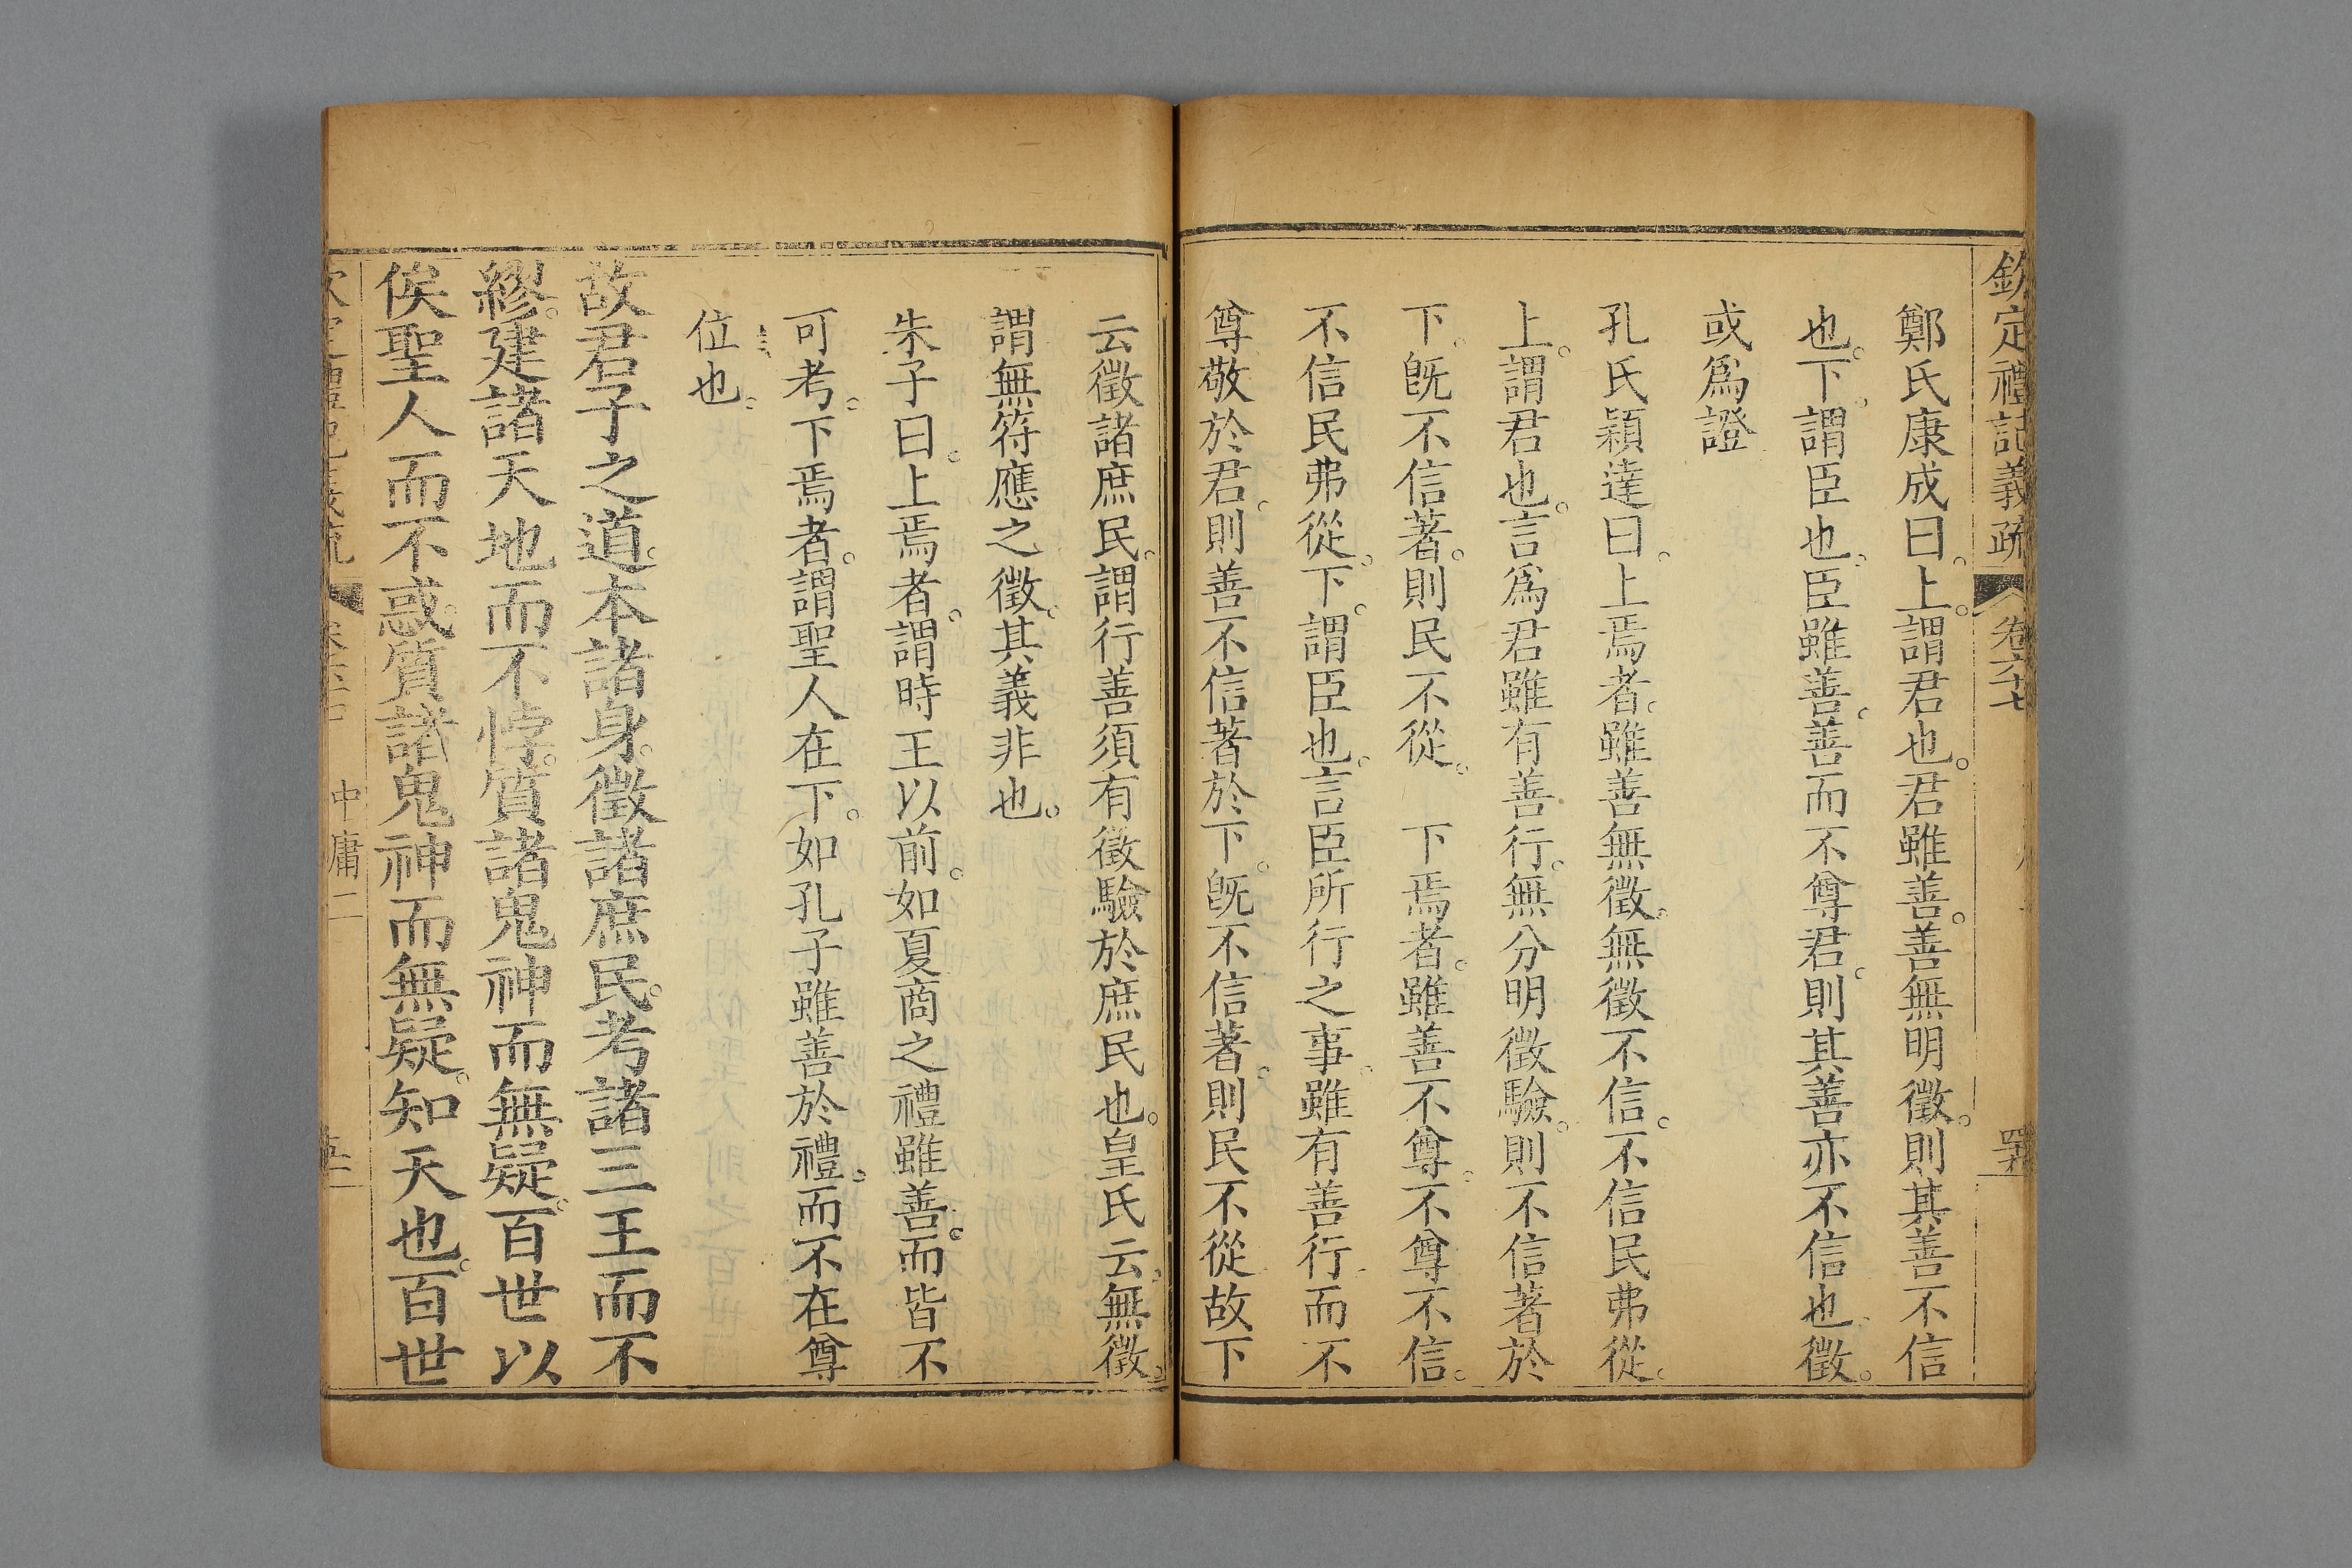 欽定禮記義疏 卷六十七
鄭氏康成曰。上。謂君也。君雖善。善無明徵。則其善不信
也。下。謂臣也。臣雖善。善而不尊君。則其善亦不信也。徵。
或爲證
孔氏穎達曰。上焉者。雖善無徵。無徵不信。不信民弗從。
上。謂君也。言爲君雖有善行。無分明徵驗。則不信著於
下。旣不信著。則民不從。 下焉者。雖善不尊。不尊不信。
不信民弗從。下。謂臣也。言臣所行之事。雖有善行而不
尊敬於君。則善不信著於下。旣不信著。則民不從故下
云徵諸庶民。謂行善須有徵驗於庶民也。皇氏云。無徵。
謂無符應之徵。其義非也。
朱子曰。上焉者。謂時王以前。如夏商之禮雖善。而皆不
可考。下焉者。謂聖人在下。如孔子雖善於禮。而不在尊
位也。
故君子之道。本諸身。徵諸庶民。考諸三王而不
繆。建諸天地而不悖。質諸鬼神而無疑。百世以
俟聖人而不惑。質諸鬼神而無疑。知天也。百世
中庸二